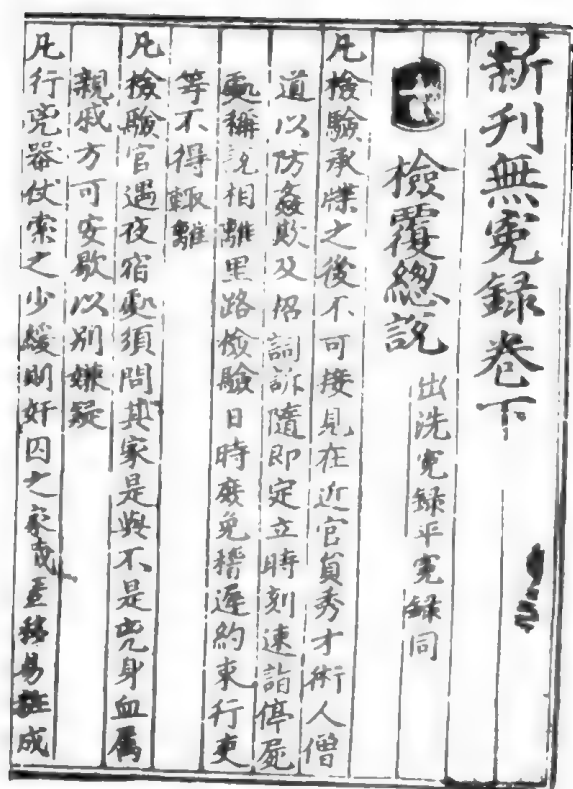 新刋無寃録巻下
檢覆總說 出洗寃録平寃録同
凡檢驗承牒之後不可接見在近官員秀才術人僧
道以防姦欺及招詞訴隨即定立時刻速詣停屍
處稱說相離里路檢驗日時庶免稽遲約束行吏
等不得輒離
凡檢驗官遇夜宿處須問其家是與不是兇身血属
親戚方可安歇以別嫌疑
凡行兇器仗索之少緩則奸囚之家藏匿移易 成